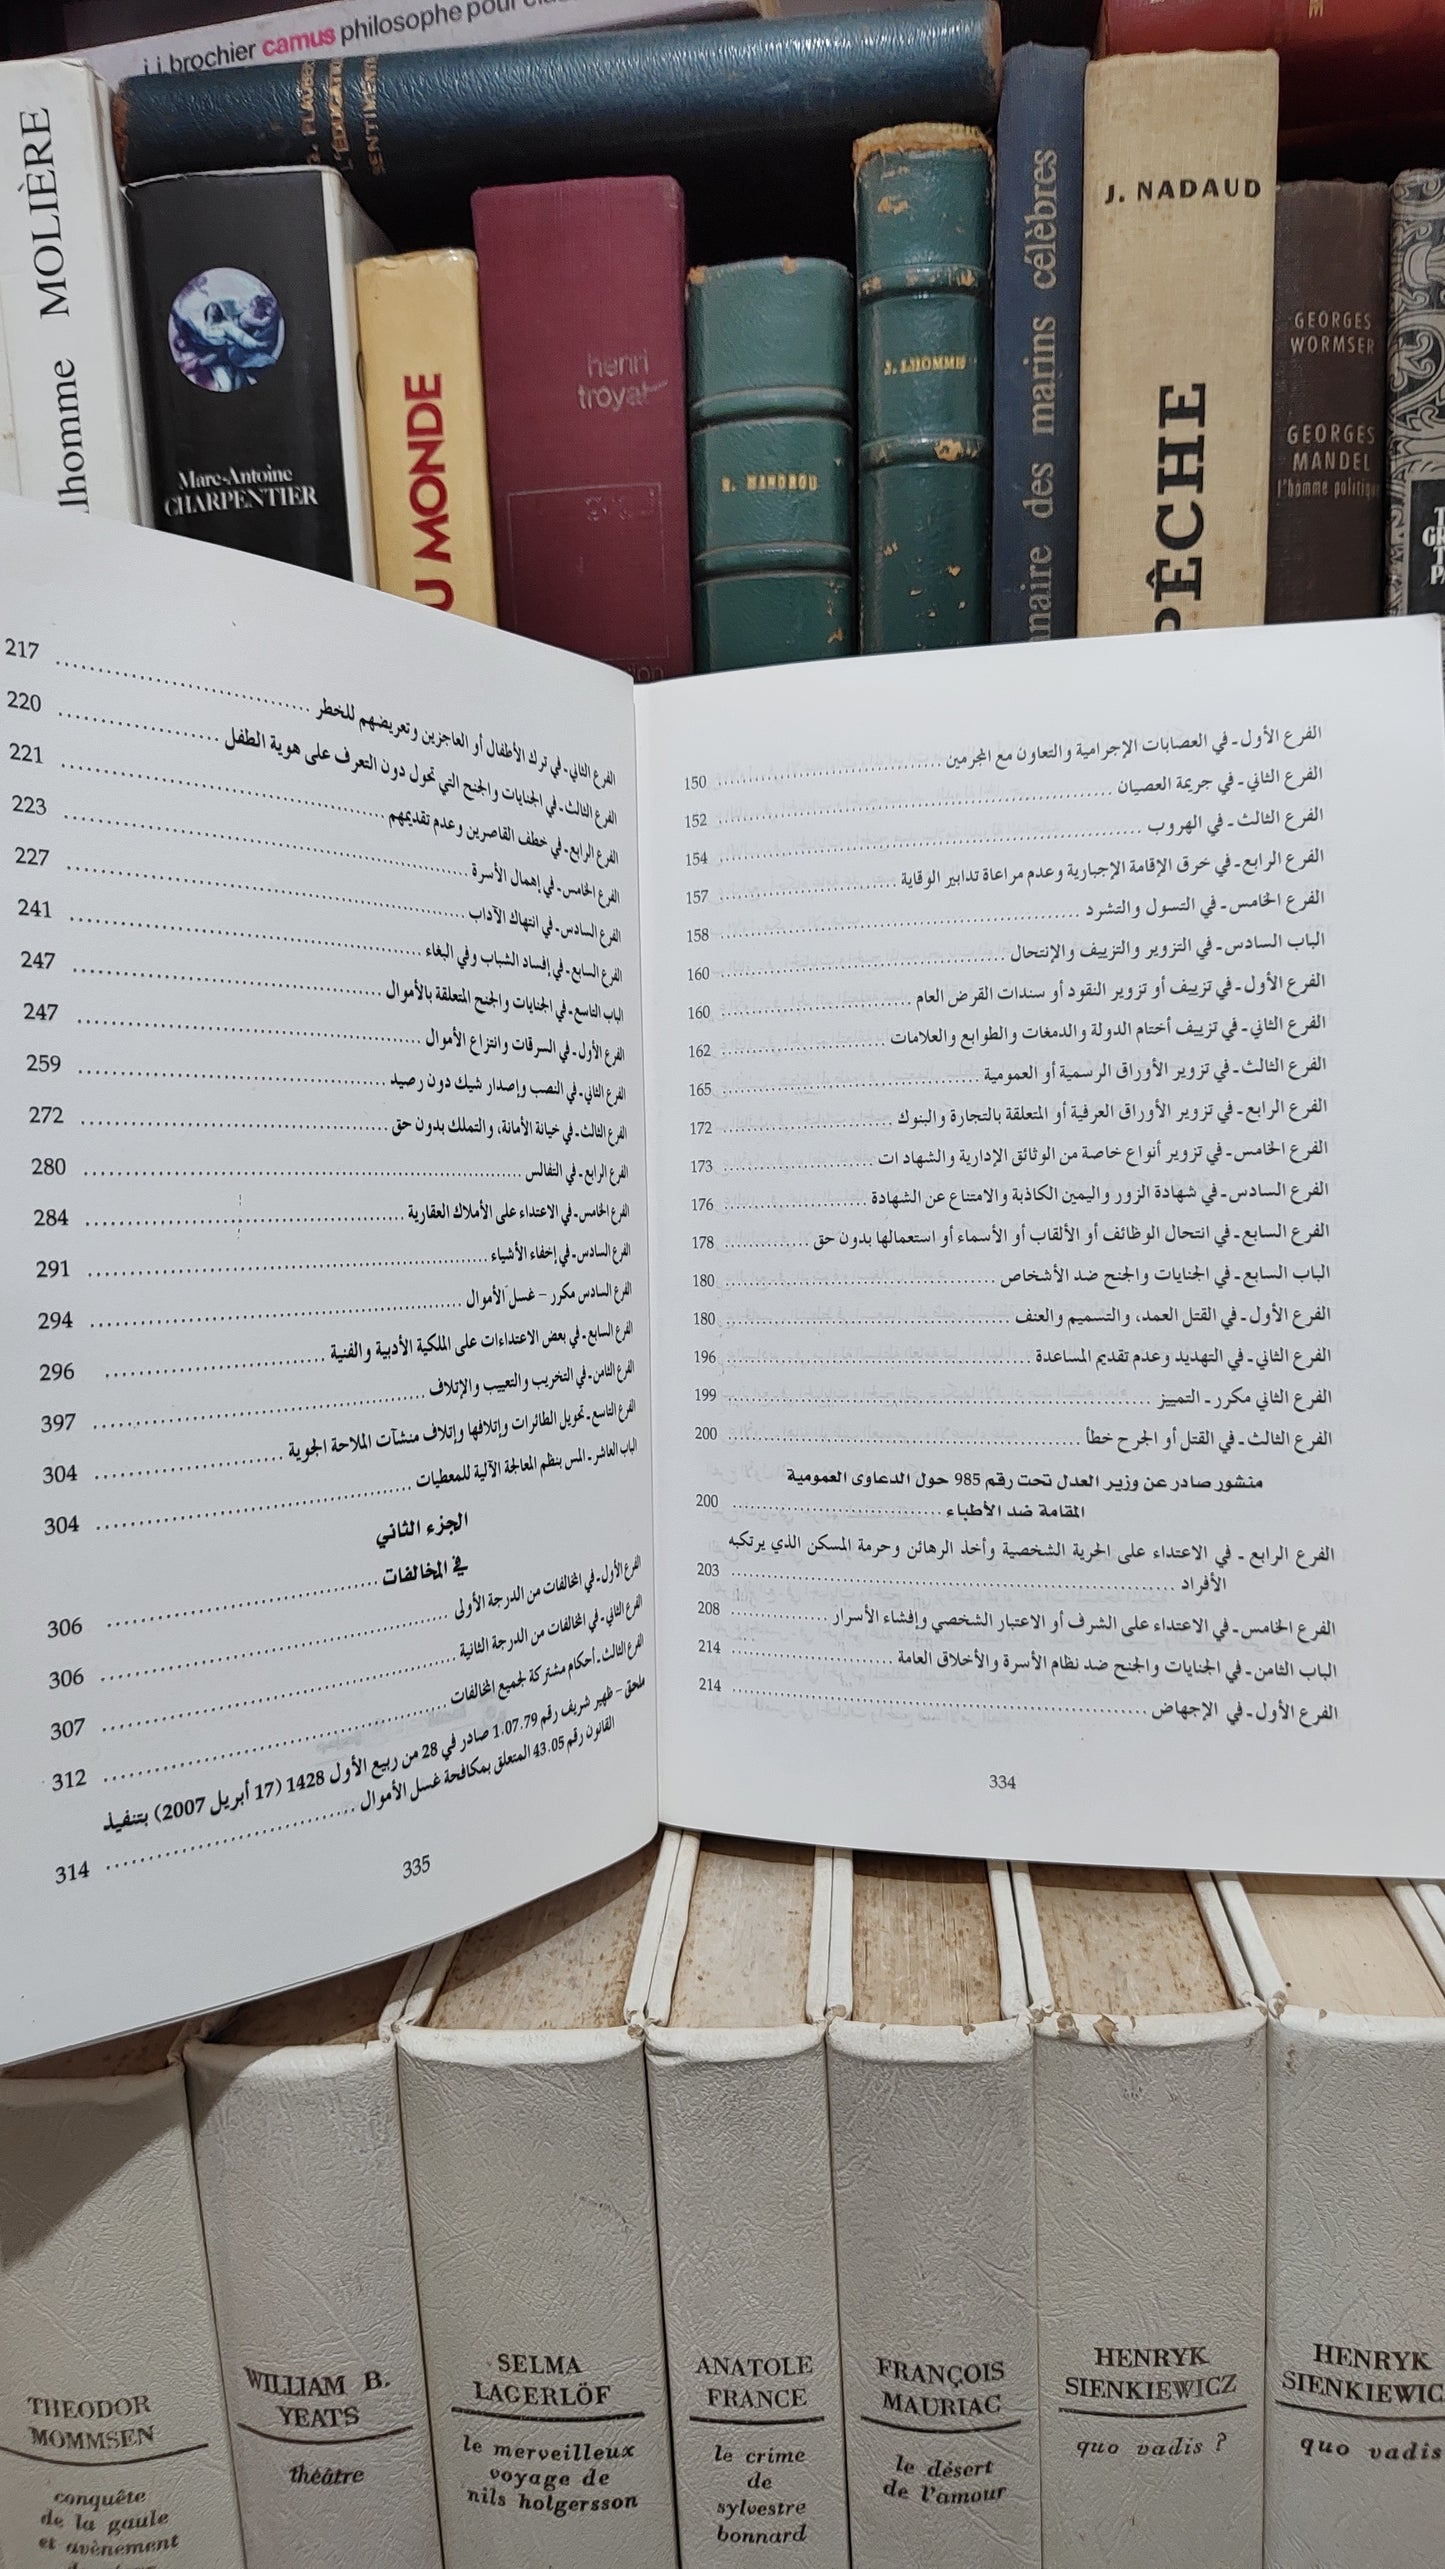 j.j. brochier camus philosophe pour
L'ÉDUCATION
SENTIMENT
MOLIÈRE
lhomme
Marc-Antoine
CHARPENTIER
U MONDE
henri
troyat
R. MANDROU
J. LHOMME
nnaire des marins célèbres
J. NADAUD
PÊCHE
GEORGES
WORMSER
GEORGES
MANDEL
l'homme politique
الفرع الأول ـ في العصابات الإجرامية والتعاون مع المجرمين ........ 150
الفرع الثاني ـ في جريمة العصيان ........ 152
الفرع الثالث ـ في الهروب ........ 154
الفرع الرابع ـ في خرق الإقامة الإجبارية وعدم مراعاة تدابير الوقاية ........ 157
الفرع الخامس ـ في التسول والتشرد ........ 158
الباب السادس ـ في التزوير والتزييف والإنتحال ........ 160
الفرع الأول ـ في تزييف أو تزوير النقود أو سندات القرض العام ........ 160
الفرع الثاني ـ في تزييف أختام الدولة والدمغات والطوابع والعلامات ........ 162
الفرع الثالث ـ في تزوير الأوراق الرسمية أو العمومية ........ 165
الفرع الرابع ـ في تزوير الأوراق العرفية أو المتعلقة بالتجارة والبنوك ........ 172
الفرع الخامس ـ في تزوير أنواع خاصة من الوثائق الإدارية والشهاد ات ........ 173
الفرع السادس ـ في شهادة الزور واليمين الكاذبة والامتناع عن الشهادة ........ 176
الفرع السابع ـ في انتحال الوظائف أو الألقاب أو الأسماء أو استعمالها بدون حق ........ 178
الباب السابع ـ في الجنايات والجنح ضد الأشخاص ........ 180
الفرع الأول ـ في القتل العمد، والتسميم والعنف ........ 180
الفرع الثاني ـ في التهديد وعدم تقديم المساعدة ........ 196
الفرع الثاني مكرر ـ التمييز ........ 199
الفرع الثالث ـ في القتل أو الجرح خطأ ........ 200
منشور صادر عن وزير العدل تحت رقم 985 حول الدعاوى العمومية
المقامة ضد الأطباء ........ 200
الفرع الرابع ـ في الاعتداء على الحرية الشخصية وأخذ الرهائن وحرمة المسكن الذي يرتكبه
الأفراد ........ 203
الفرع الخامس ـ في الاعتداء على الشرف أو الاعتبار الشخصي وإفشاء الأسرار ........ 208
الباب الثامن ـ في الجنايات والجنح ضد نظام الأسرة والأخلاق العامة ........ 214
الفرع الأول ـ في الإجهاض ........ 214
334
الفرع الثاني ـ في ترك الأطفال أو العاجزين وتعريضهم للخطر ........ 217
الفرع الثالث ـ في الجنايات والجنح التي تحول دون التعرف على هوية الطفل ........ 220
الفرع الرابع ـ في خطف القاصرين وعدم تقديمهم ........ 221
الفرع الخامس ـ في إهمال الأسرة ........ 223
الفرع السادس ـ في انتهاك الآداب ........ 227
الفرع السابع ـ في إفساد الشباب وفي البغاء ........ 241
الباب التاسع ـ في الجنايات والجنح المتعلقة بالأموال ........ 247
الفرع الأول ـ في السرقات وانتزاع الأموال ........ 247
الفرع الثاني ـ في النصب وإصدار شيك دون رصيد ........ 259
الفرع الثالث ـ في خيانة الأمانة، والتملك بدون حق ........ 272
الفرع الرابع ـ في التفالس ........ 280
الفرع الخامس ـ في الاعتداء على الأملاك العقارية ........ 284
الفرع السادس ـ في إخفاء الأشياء ........ 291
الفرع السادس مكرر – غسل الأموال ........ 294
الفرع السابع ـ في بعض الاعتداءات على الملكية الأدبية والفنية ........ 296
الفرع الثامن ـ في التخريب والتعييب والإتلاف ........ 397
الفرع التاسع ـ تحويل الطائرات وإتلافها وإتلاف منشآت الملاحة الجوية ........ 304
الباب العاشر ـ المس بنظم المعالجة الآلية للمعطيات ........ 304
الجزء الثاني
في المخالفات ........ 306
الفرع الأول ـ في المخالفات من الدرجة الأولى ........ 306
الفرع الثاني ـ في المخالفات من الدرجة الثانية ........ 307
الفرع الثالث ـ أحكام مشتركة لجميع المخالفات ........ 312
ملحق – ظهير شريف رقم 1.07.79 صادر في 28 من ربيع الأول 1428 (17 أبريل 2007) بتنفيذ
القانون رقم 43.05 المتعلق بمكافحة غسل الأموال ........ 314
335
THEODOR
MOMMSEN
conquête
de la gaule
et avènement
WILLIAM B.
YEATS
théâtre
SELMA
LAGERLÖF
le merveilleux
voyage de
nils holgersson
ANATOLE
FRANCE
le crime
de
sylvestre
bonnard
FRANÇOIS
MAURIAC
le désert
de l'amour
HENRYK
SIENKIEWICZ
quo vadis ?
HENRYK
SIENKIEWIC
quo vadis